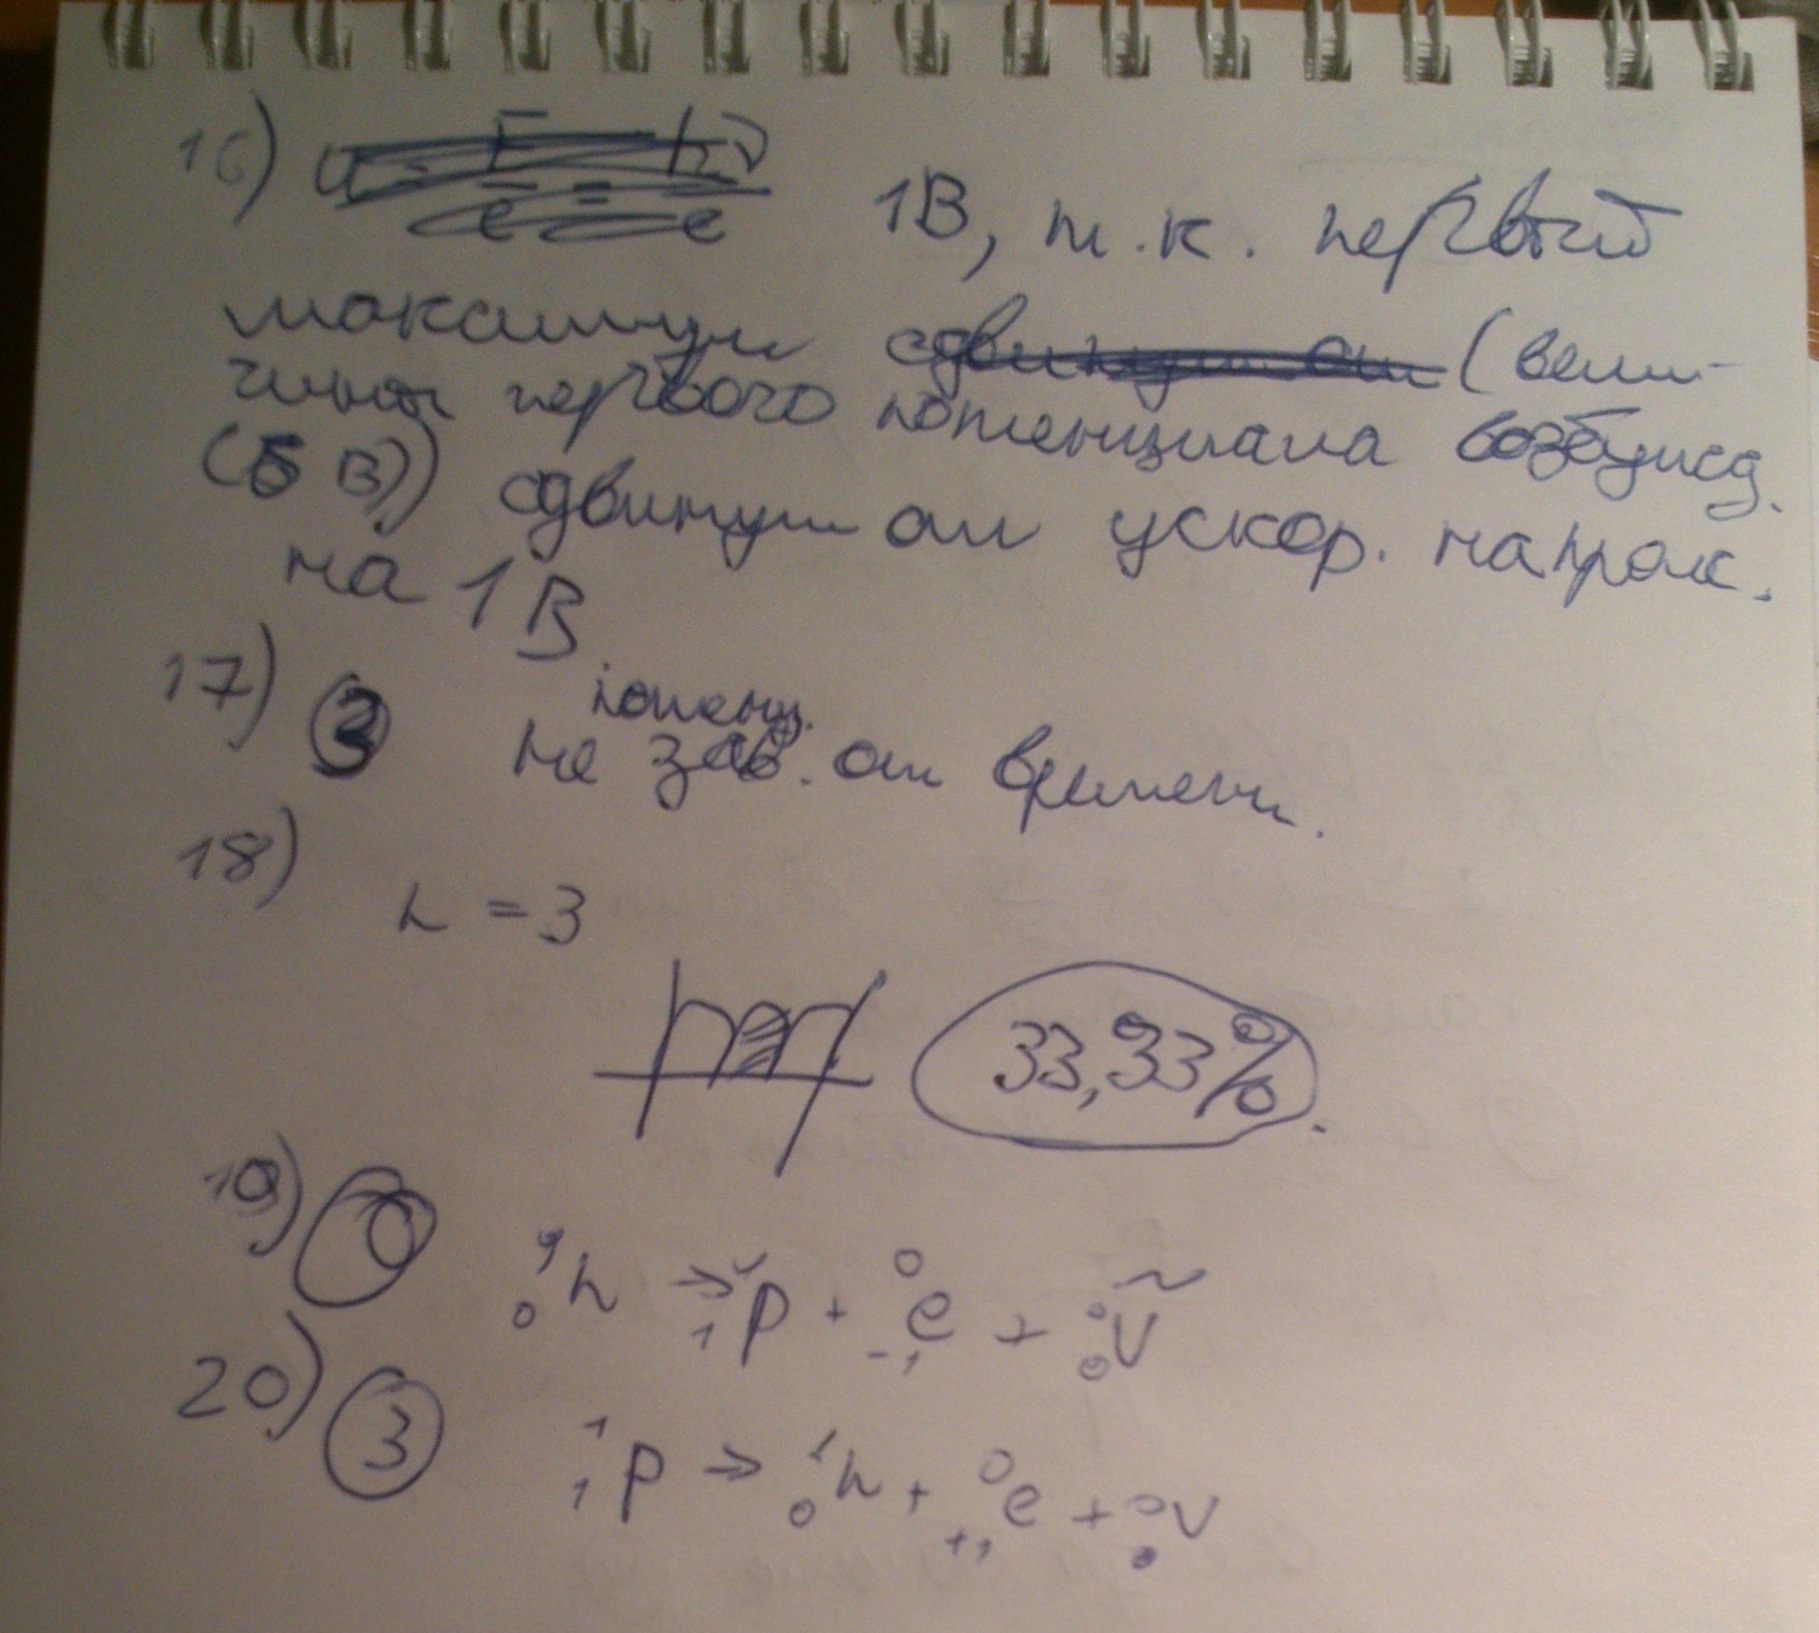 16) 1В, т.к. первый
максимум (вели-
чины первого потенциала возбужд.
(5 В)) сдвинут от ускор. напряж.
на 1 В.
17) 3 потенц.
не зав. от времени.
18) n = 3
33,33%.
19) ¹₀n → ¹₁p + ⁰₋₁e + ⁰₀ṽ
20) 3 ¹₁p → ¹₀n + ⁰₊₁e + ⁰₀v